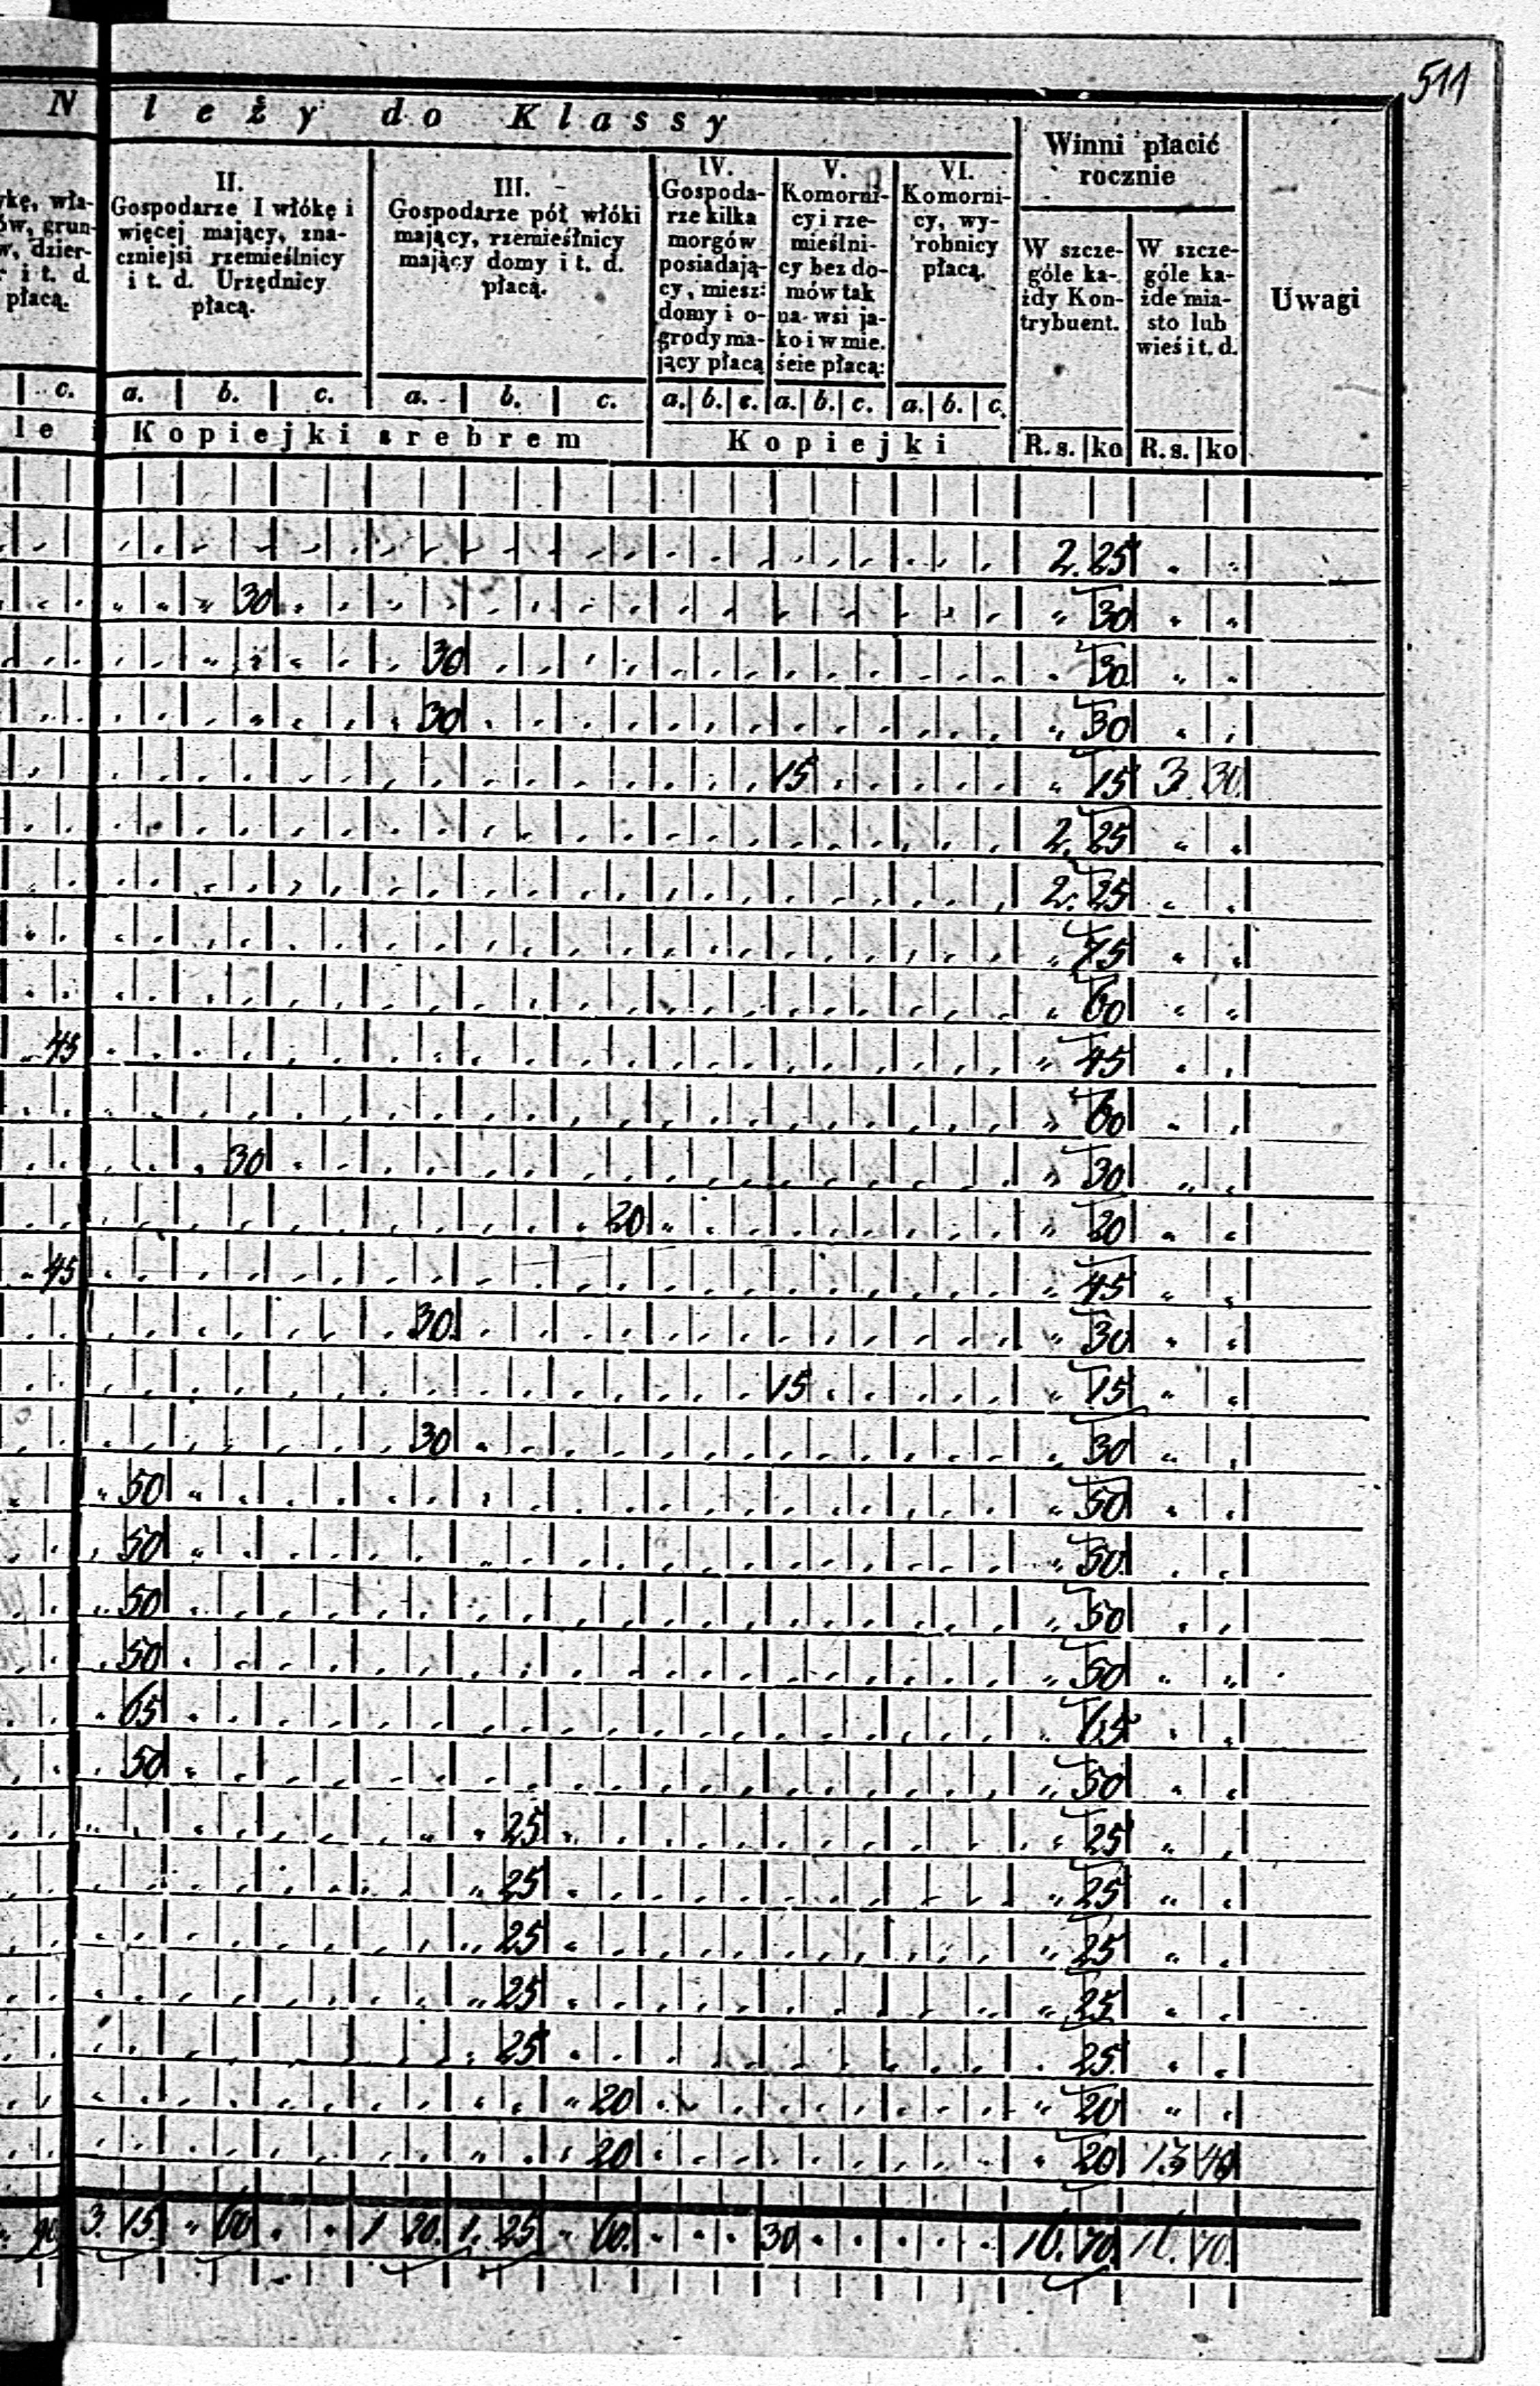 511
N leży do Klassy
Winni płacić rocznie
Uwagi
płacą.
II.
Gospodarze I włókę i
więcej mający, zna-
czniejsi rzemieślnicy
i t. d. Urzędnicy
płacą.
III.
Gospodarze pół włóki
mający, rzemieślnicy
mający domy i t. d.
płacą.
IV.
Gospoda-
rze kilka
morgów
posiadają-
cy, miesz:
domy i o-
grody ma-
jący płacą
V.
Komorni-
cy i rze-
mieślni-
cy bez do-
mów tak
na wsi ja-
ko i w mie.
ście płacą:
VI.
Komorni-
cy, wy-
robnicy
płacą.
W szcze-
góle ka-
żdy Kon-
trybuent.
W szcze-
góle ka-
żde mia-
sto lub
wieś i t. d.
c. a. b. c. a. b. c. a. b. c. a. b. c. a. b. c.
le Kopiejki srebrem Kopiejki R. s. ko R. s. ko
2. 25
30 30
30 30
30 30
15 15 3. 30
2. 25
2. 25
75
60
45 45
60
30 30
20 20
45 45
30 30
15 15
30 30
50 50
50 50
50 50
50 50
65 65
50 50
25 25
25 25
25 25
25 25
25 25
20 20
20 20 13 40
90 3. 15 60 1 20 1. 25 60 30 16. 70 16. 70